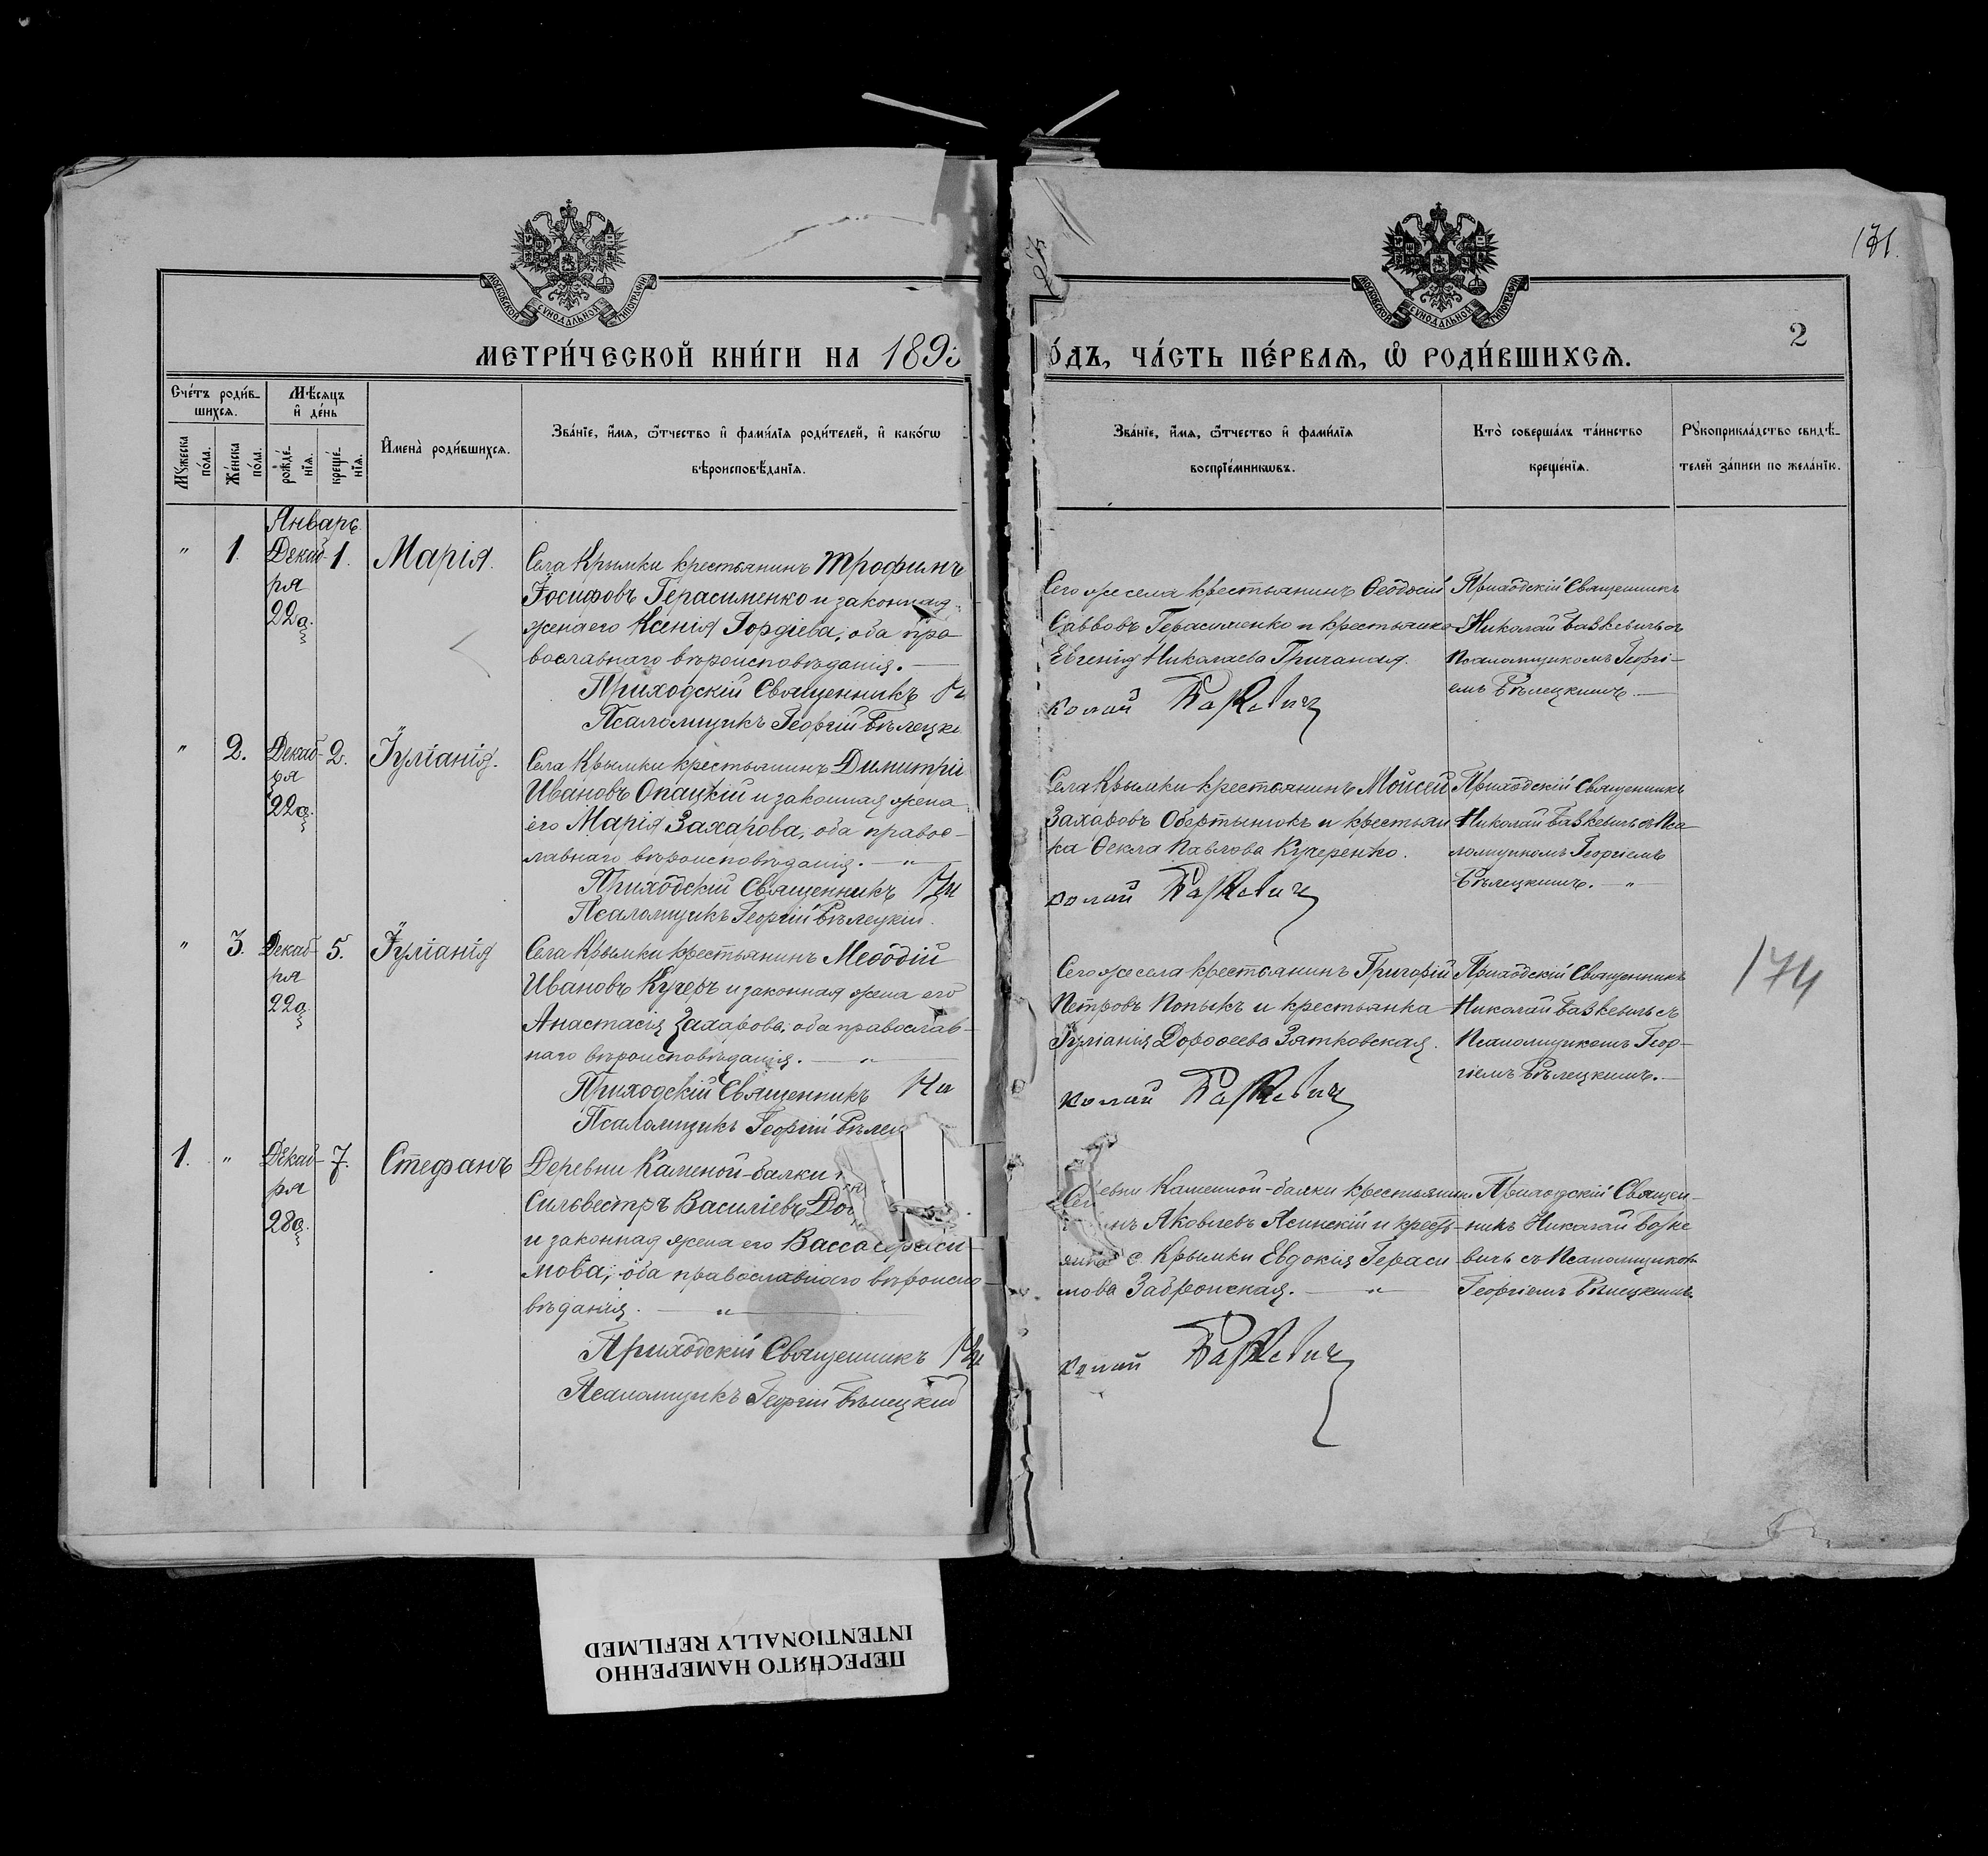 131.
МОСКОВСКОЙ СУНОДАЛЬНОЙ ТИПОГРАФІИ
МОСКОВСКОЙ СУНОДАЛЬНОЙ ТИПОГРАФІИ
2
МЕТРИ́ЧЕСКОЙ КНИ́ГИ НА 1893
О́ДЪ, ЧА́СТЬ ПЕ́РВАѦ, Ѡ҆ РОДИ́ВШИХСѦ.
Сче́тъ роди́в-
шихсѧ.
Мѣ́сѧцъ
и҆ де́нь
Мꙋжеска по́ла.
Же́нска по́ла.
рожде́нїѧ.
креще́нїѧ.
И҆мена̀ роди́вшихсѧ.
Зва́нїе, и҆́мѧ, ѻ҆́тчество и҆ фами́лїѧ роди́телей, и҆ како́гѡ
вѣроисповѣ́данїѧ.
Зва́нїе, и҆́мѧ, ѻ҆́тчество и҆ фами́лїѧ
воспрїе́мникѡвъ.
Кто̀ соверша́лъ та́инство
креще́нїѧ.
Рꙋкоприкла́дство свидѣ́-
телей за́писи по жела́нїю.
Январь
" 1. Декаб- 1. Марія.
ря
22го.
Села Крымки крестьянинъ Трофимъ
Іосифовъ Герасименко и законная
жена его Ксенія Гордіева, оба пра
вославнаго вѣроисповѣданія. —
Приходскій Священникъ Ни
Псаломщикъ Георгій Бѣлецкі
Сего же села крестьянинъ Ѳеодосій
Саввовъ Герасименко и крестьянка
Евгенія Николаева
колай Базкевич
Приходскій Священникъ
Николай Базкевичъ съ
Псаломщикомъ Георгі-
емъ Бѣлецкимъ. —
" 2. Декаб- 2. Іуліанія.
ря
22го.
Села Крымки крестьянинъ Димитрій
Ивановъ Опацкій и законная жена
его Марія Захарова, оба правос-
лавнаго вѣроисповѣданія. — " —
Приходскій Священникъ Ни
Псаломщикъ Георгій Бѣлецкій.
Села Крымки крестьянинъ Мойсей
Захаровъ и крестьян
ка Ѳекла Павлова Кучеренко.
колай Базкевич
Приходскій Священникъ
Николай Базкевичъ съ Пса
ломщикомъ Георгіемъ
Бѣлецкимъ. — " —
" 3. Декаб- 5. Іуліанія
ря
22го.
Села Крымки крестьянинъ Меѳодій
Ивановъ Кучеръ и законная жена его
Анастасія Захарова, оба православ-
наго вѣроисповѣданія. — " —
Приходскій Священникъ Ни
Псаломщикъ Георгій Бѣлец
Сего же села крестьянинъ Григорій
Петровъ Попыкъ и крестьянка
Іуліанія Дороѳеева Зятковская.
колай Базкевич
Приходскій Священникъ
Николай Базкевичъ съ
Псаломщикомъ Геор-
гіемъ Бѣлецкимъ. —
174
1. " Декаб- 7. Стефанъ
ря
28го.
Деревни Каменой-балки
Сильвестръ Василіевъ
и законная жена его Васса Гераси-
мова, оба православнаго вѣроиспо-
вѣданія. — " —
Приходскій Священникъ Ни
Псаломщикъ Георгій Бѣлецкій
евни Каменной-балки крестьянин
нъ Яковлевъ Ясинскій и крест-
янка с. Крымки Евдокія Гераси
мова — " —
колай Базкевич
Приходскій Священ-
никъ Николай Базке
вичъ съ Псаломщиком
Георгіемъ Бѣлецкимъ.
ПЕРЕСНЯТО НАМЕРЕННО
INTENTIONALLY REFILMED